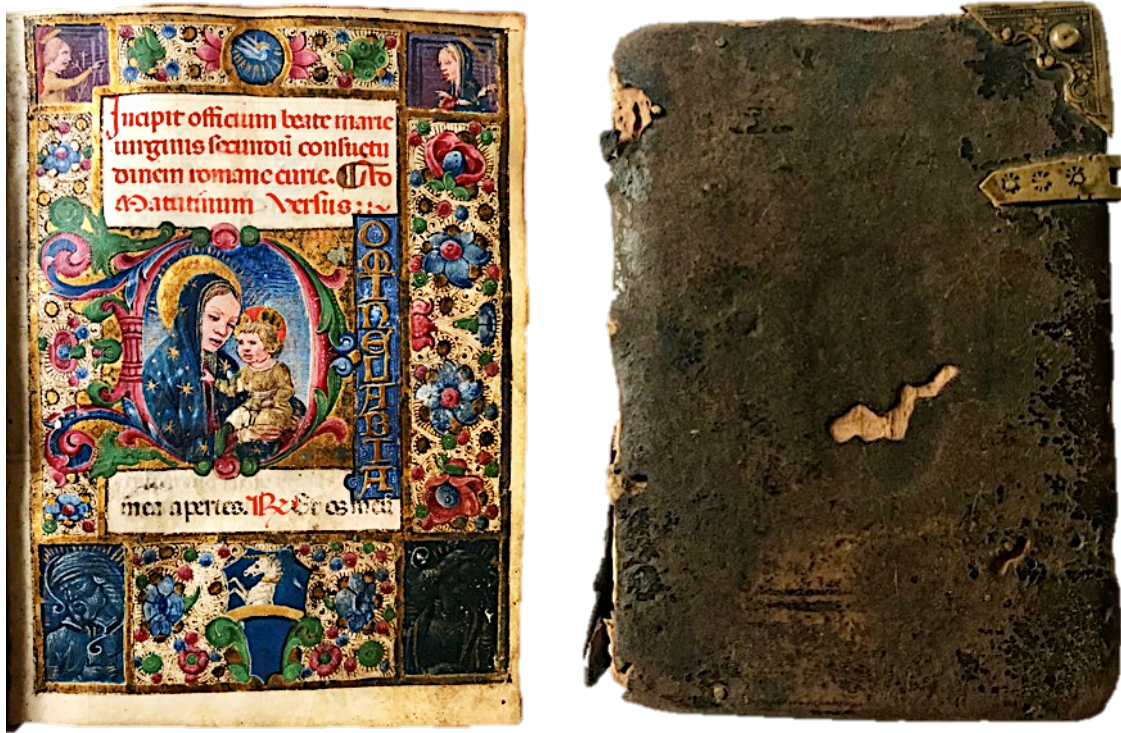 Incipit officium beate marie
uirginis secundū consuetu
dinem romane curie. Ad
Matutinum Versus
DOMINE LABIA
mea aperies. ℟ Et os meū